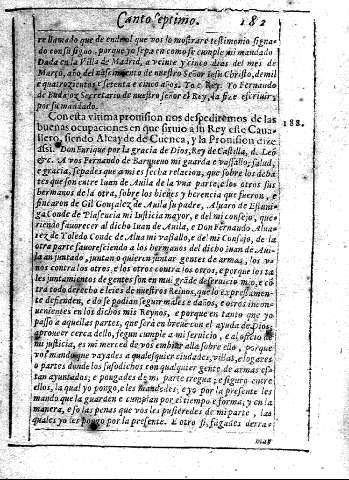 Canto septimo. 182
re llamado que de ende al que vos lo mostrare testimonio signa-
do con su signo, porque yo sepa en como se cumple mi mandado
Dada en la Villa de Madrid, a veinte y cinco dias del mes de
Março, año del nascimiento de nuestro Señor Iesu Christo, de mil
e quatrozientos e setenta e cinco años. Yo el Rey. Yo Fernando
de Secretario de nuestro señor el Rey, la fize escriuir
por su mandado.
Con esta vltima prouision nos despediremos de las
buenas ocupaciones en que siruio a su Rey este Caua-
llero, siendo Alcayde de Cuenca, y la Prouision dize
assi. Don Enrique por la gracia de Dios, Rey de Castilla, d Leō
&c. A vos Fernando de mi guarda e vassallo, salud,
e gracia, sepades que a mi es fecha relacion, que sobre los deba-
tes que son entre Iuan de Auila de la vna parte, e los otros sus
hermanos de la otra, sobre los bienes y herencia que fueron, e
fincaron de Gil Gonçalez de Auila su padre, Aluaro de Estani-
ga Conde de Plasencia mi Iusticia mayor, e del mi consejo, que-
riendo fauorecer al dicho Iuan de Auila, e Don Fernando Aluar-
ez de Toledo Conde de Alua mi vassallo, e del mi Consejo, de la
otra parte fauoresciendo a los hermanos del dicho Iuan de Aui-
la an juntado, juntan o quieren juntar gentes de armas, los va-
nos contra los otros, e los otros contra los otros, e porque los ta
les juntamientos de gentes son en mui grāde deseruicio mio, e cō
tra todo derecho e leies de nuestros Reinos, que lo expressamen-
te defienden, e do se podian seguir males e daños, e otros incon-
uenientes en los dichos mis Reynos, e porque en tanto que yo
passo a aquellas partes, que será en breue con el ayuda de Dios,
a proueer cerca dello, segun cumple a mi seruicio, e al oficio de
mi justicia, es mi merced de vos embiar alla sobre ello, porque
vos mando que vayades a qualesquier ciudades, villas, e logares
o partes donde los susodichos con qualquier gente de armas estā
tan ayuntados, e pongades de mi parte tregua, e seguro entre
ellos, la qual yo pongo, e les mandedes, e yo por la presente les
mando que la guarden e cumplan por el tiempo e forma, y en la
manera, e so las penas que vos les pusieredes de mi parte, las
quales yo les pongo por la presente. E otro si, fagades derra-
188.
mar